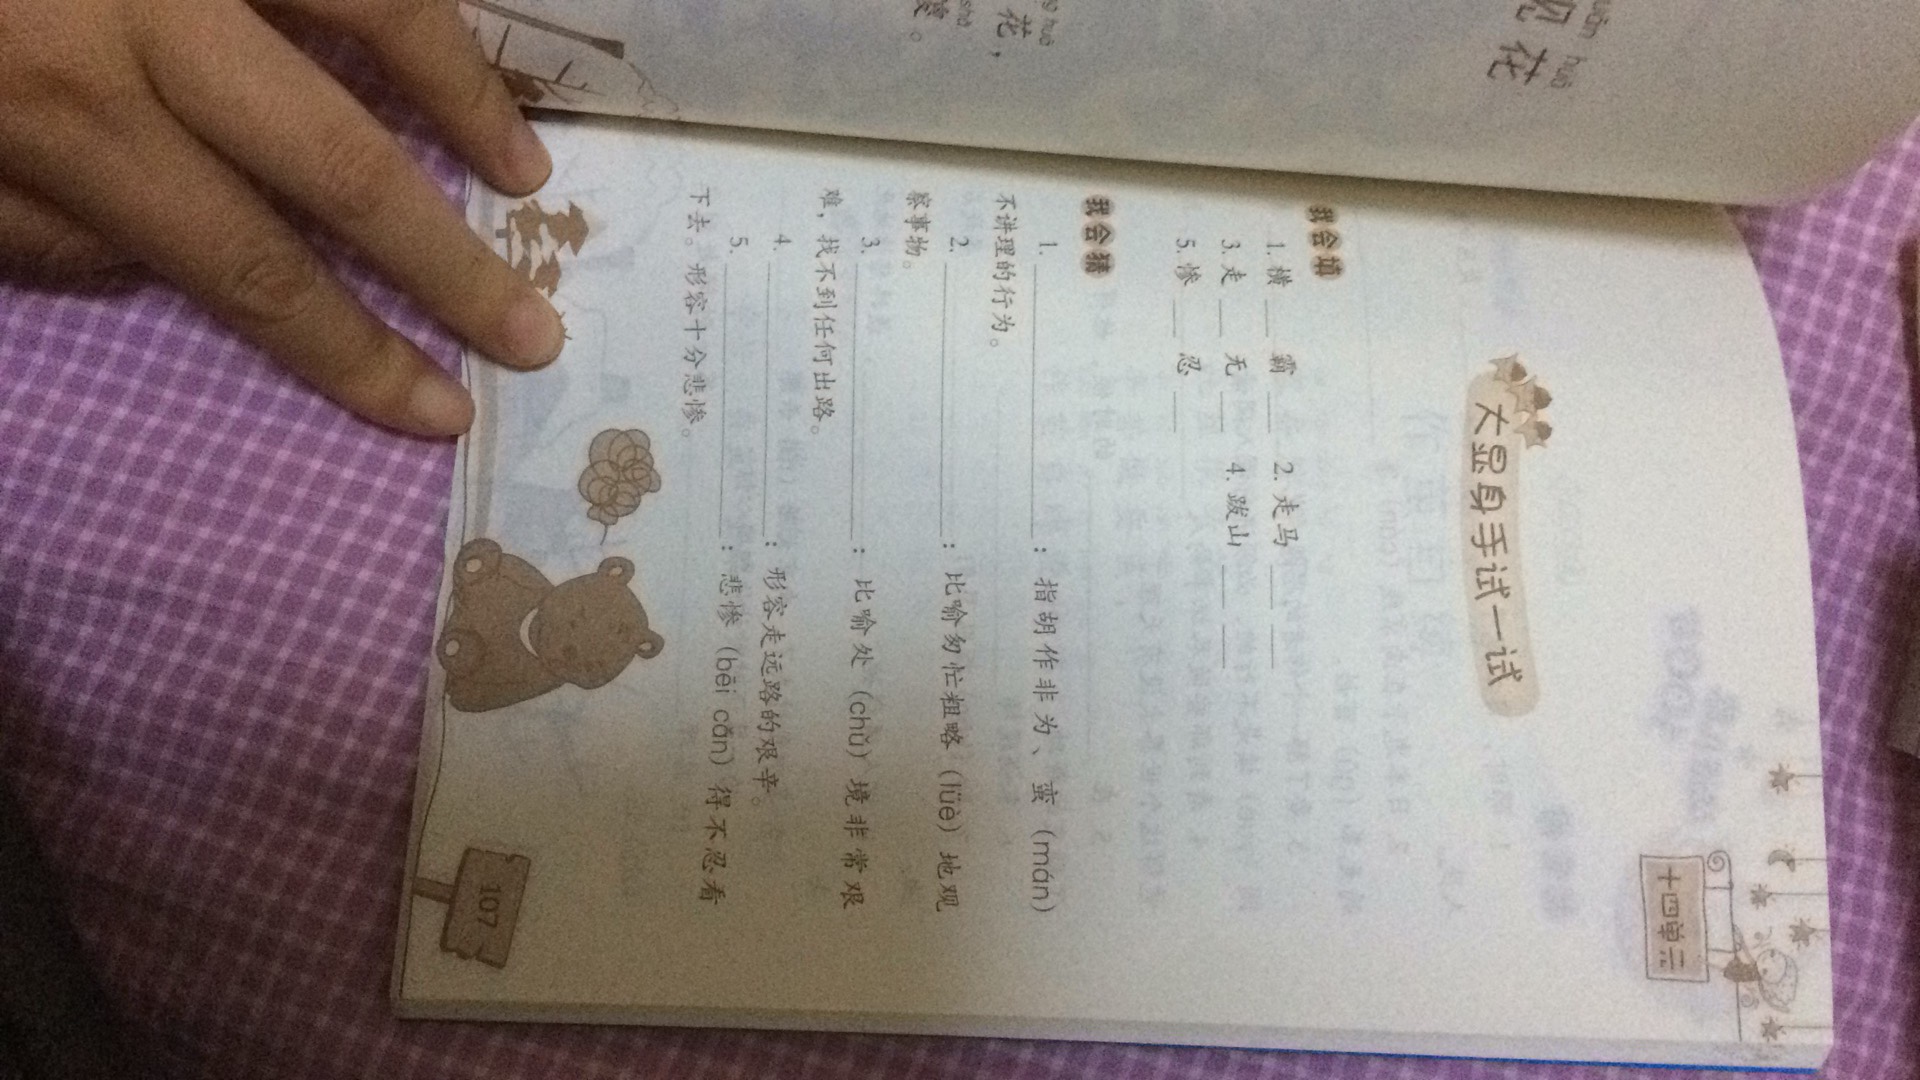 十四单元
大显身手试一试
我会填
1. 横 ___ 霸 ___ 2. 走马 ___ ___
3. 走 ___ 无 ___ 4. 跋山 ___ ___
5. 惨 ___ 忍 ___
我会猜
1. ___：指胡作非为、蛮（mán）
不讲理的行为。
2. ___：比喻匆忙粗略（lüè）地观
察事物。
3. ___：比喻处（chǔ）境非常艰
难，找不到任何出路。
4. ___：形容走远路的艰辛。
5. ___：悲惨（bēi cǎn）得不忍看
下去。形容十分悲惨。
107
huā
花
花，